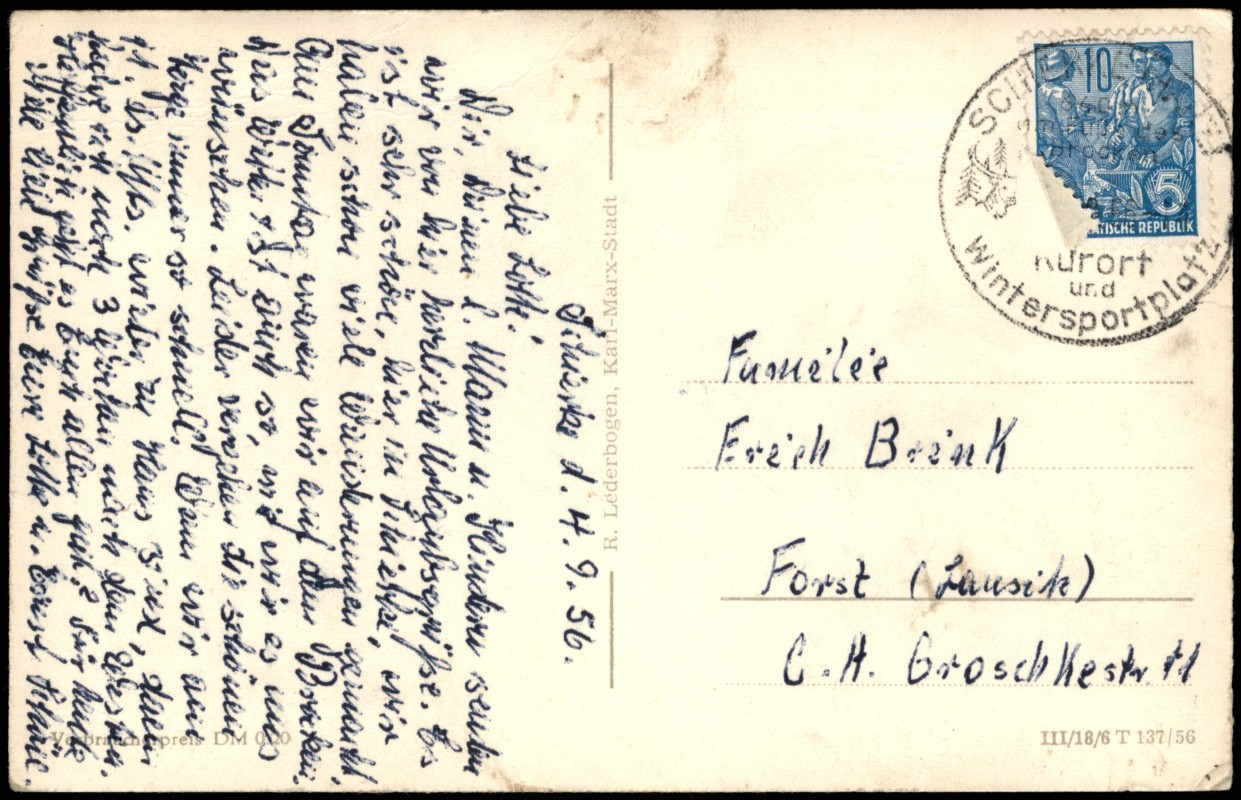 Schierke d. 4. 9. 56.
Liebe Lotti.
Dir, Deinen l. Mann u. Kindern senden
wir von hier herzliche Urlaubsgrüße. Es
ist sehr schön, hier in Schierke, wir
haben schon viele Wanderungen gemacht.
Am Sonntag waren wir auf den Brocken.
Das Wetter ist auch so, wie wir es uns
wünschen. Leider vergehen die schönen
Tage immer so schnell. Wenn wir am
wieder zu Haus sind,
noch 3 Wochen nach dem Westen.
Hoffentlich geht es Euch allen gut. Für heute
Viele liebe Grüße Eure Lotte u. Ernst
R. Lederbogen, Karl-Marx-Stadt
Verbraucherpreis DM 0,20
10
5
ATISCHE REPUBLIK
SCHIERKE
Kurort
und
Wintersportplatz
Familie
Erich Brink
Forst (Lausitz)
C. H. Groschkestr. 11
III/18/6 T 137/56